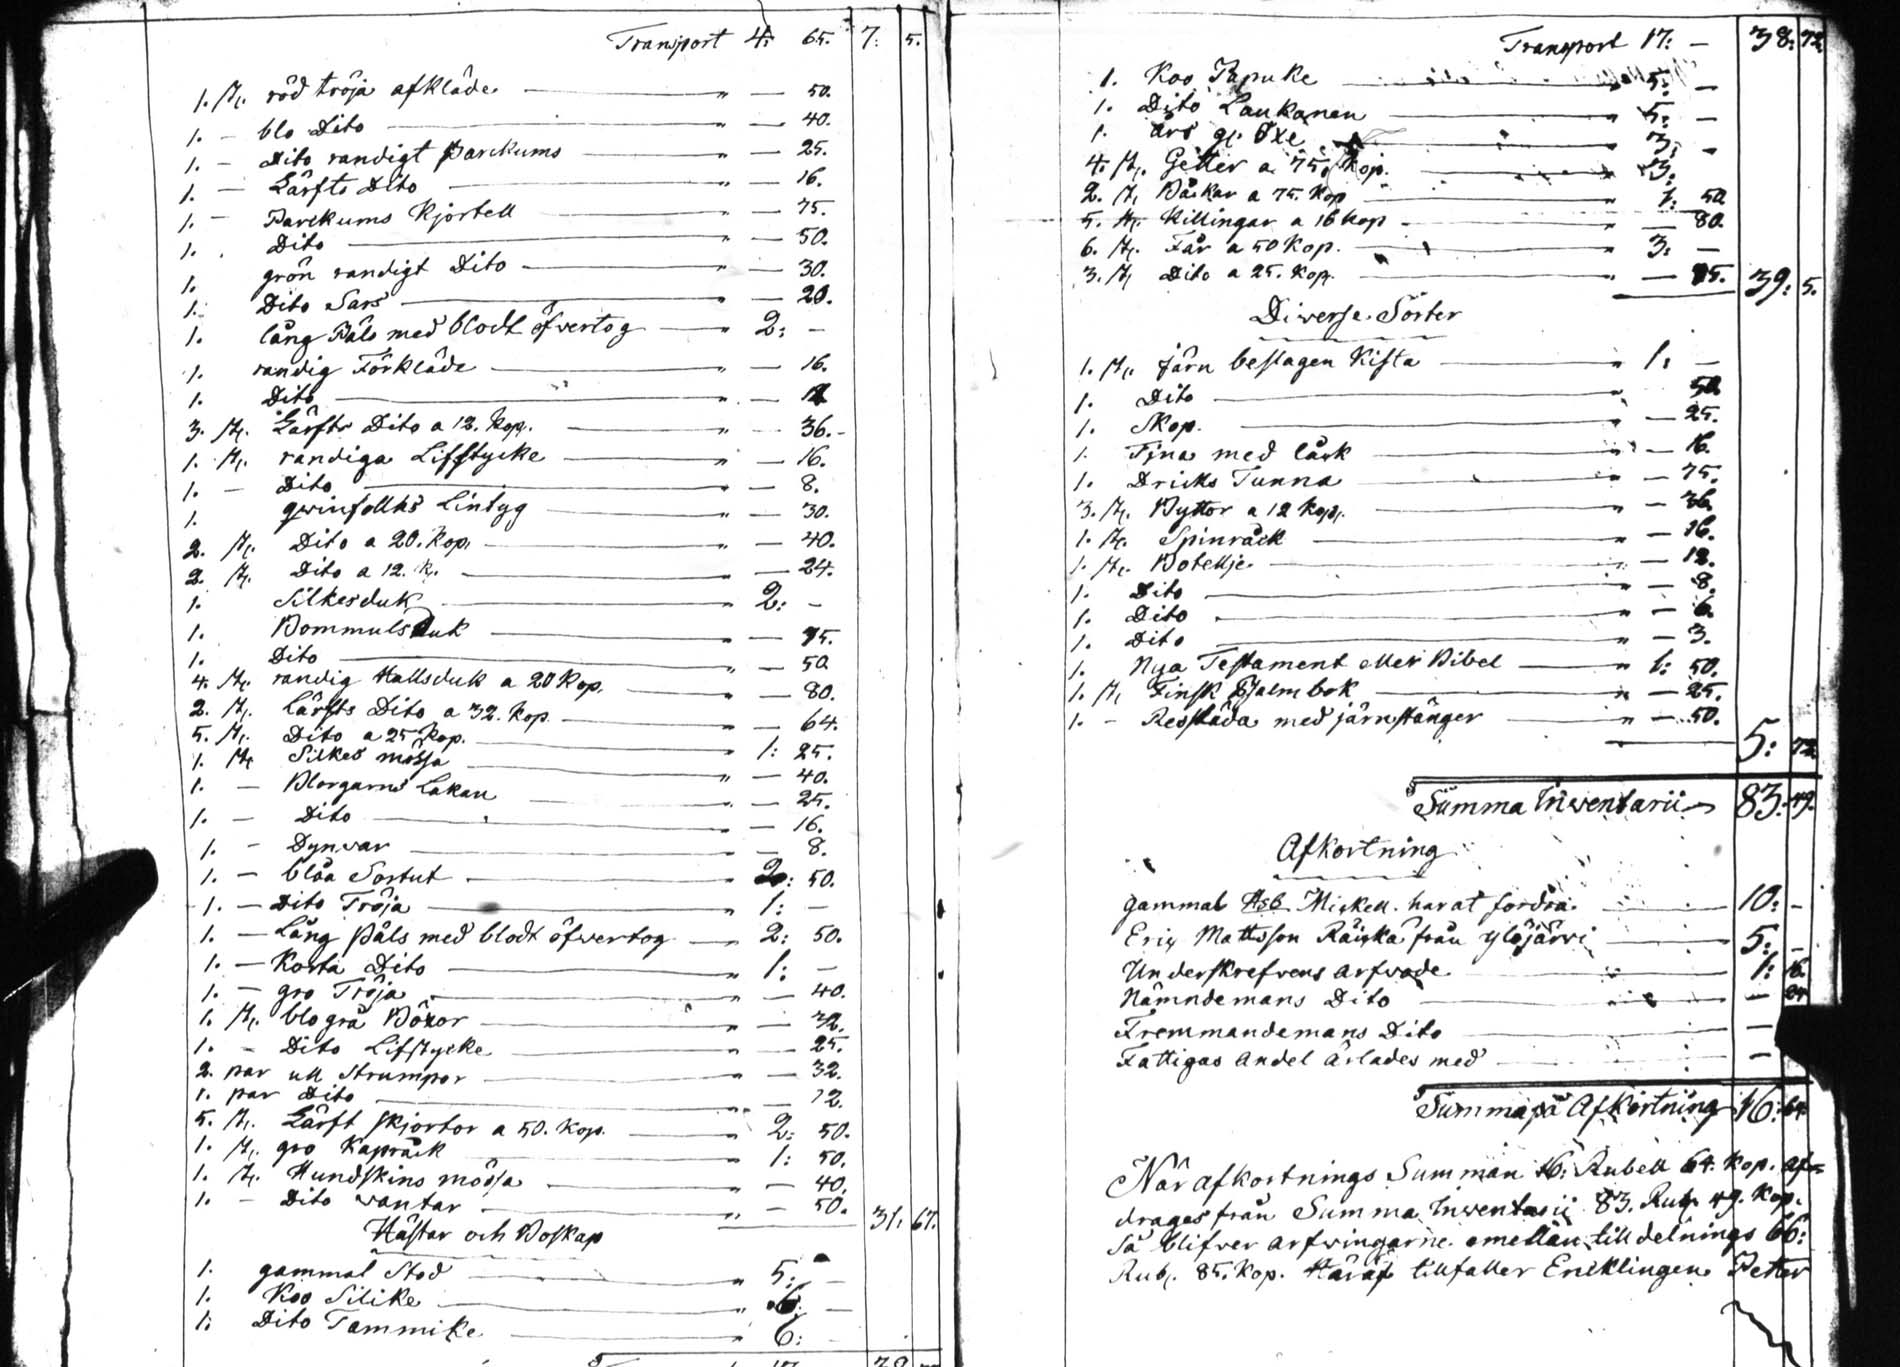 Transport 4: 65. 7: 5.
1. st. röd tröja af kläde " — 50.
1. — blo Dito " — 40.
1. — Dito randigt Parckums " — 25.
1. — Lärfts Dito " — 16.
1. — Parckums Kjortell " — 75.
1. Dito " — 50.
1. grön randigt Dito " — 30.
1. Dito Sars " — 20.
1. lång Päls med blodt öfvertog " 2: —
1. randig Förkläde " — 16.
1. Dito " —
3. st. Lärfts Dito a 12. Kop. " — 36.
1. st. randiga Lifstycke " — 16.
1. — Dito " — 8.
1. qvinfolks Lintyg " — 30.
2. st. Dito a 20. Kop. " — 40.
2. st. Dito a 12. K. " — 24.
1. Silkesduk " 2: —
1. Bommulsduk " — 75.
1. Dito " — 50
4. st. randig Hallsduk a 20 Kop. " — 80.
2. st. Lärfts Dito a 32. Kop. " — 64.
5. st. Dito a 25 Kop. " 1: 25.
1. st. Silkes mössa " — 40.
1. — Blorgarns Lakan " — 25.
1. — Dito " — 16.
1. — Dynvar " — 8.
1. — blåa Sortut " 2: 50.
1. — Dito Tröja " 1: —
1. — Lång Päls med blodt öfvertog " 2: 50.
1. — Korta Dito " 1: —
1. — gro Tröja " — 40.
1. st. blo grå Böxor " — 32.
1. — Dito Lifstycke " — 25.
2. par ull Strumpor " — 32.
1. par Dito " — 12.
5. st. Lärft skjortor a 50. Kop. " 2: 50.
1. st. gro Kapråck " 1: 50.
1. st. Hundskins mössa " — 40.
1. — Dito vantar " — 50. 31: 67.
Hästar och Boskap
1. gammal Stod " 5: —
1. Koo Silike " 6: —
1. Dito Tammike " 6: —
Transport 17: — 38: 72
1. Koo Papuke " 5: —
1. Dito Laukanen " 5: —
1. års gl. Oxe " 3: —
4. st. Getter a 75. Kop. " 3:
2. st. Båckar a 75. Kop " 1: 50
5. st. Killingar a 16 Kop " — 80.
6. st. Får a 50 Kop. " 3: —
3. st. Dito a 25. Kop. " — 75. 39: 5.
Diverse Sorter
1. st. järn beslagen Kista " 1: —
1. Dito " 50.
1. Skop. " — 25.
1. Tina med låck " — 16.
1. Dricks Tunna " — 75.
3. st. Byttor a 12 Kop. " — 36.
1. st. Spinråck " — 16.
1. st. Botellje " — 12.
1. Dito " — 8.
1. Dito " — 6.
1. Dito " — 3.
1. Nya Testament eller Bibel " 1: 50.
1. st. Finsk Psalmbok " — 25.
1. — Resslåda med järnstänger " — 50.
5: 72
Summa Inventarii 83: 49.
Afkortning
gammal Hsb. Mickell har at fordra 10: —
Eriy Mattsson Räiskä från Ylöjärvi 5: —
Underskrefvens arfvode 1: 16.
Nämndemans Dito —
Fremmandemans Dito —
Fattigas andel ärlades med —
Summa på Afkortning 16: 64
När afkortnings Summan 16: Rubell 64. Kop. af=
drages från Summa Inventarii 83. Rub. 49. Kop.
så blifver arfvingarne emellan till delnings 66:
Rub. 85. Kop. Häraf tillfaller Encklingen Petter